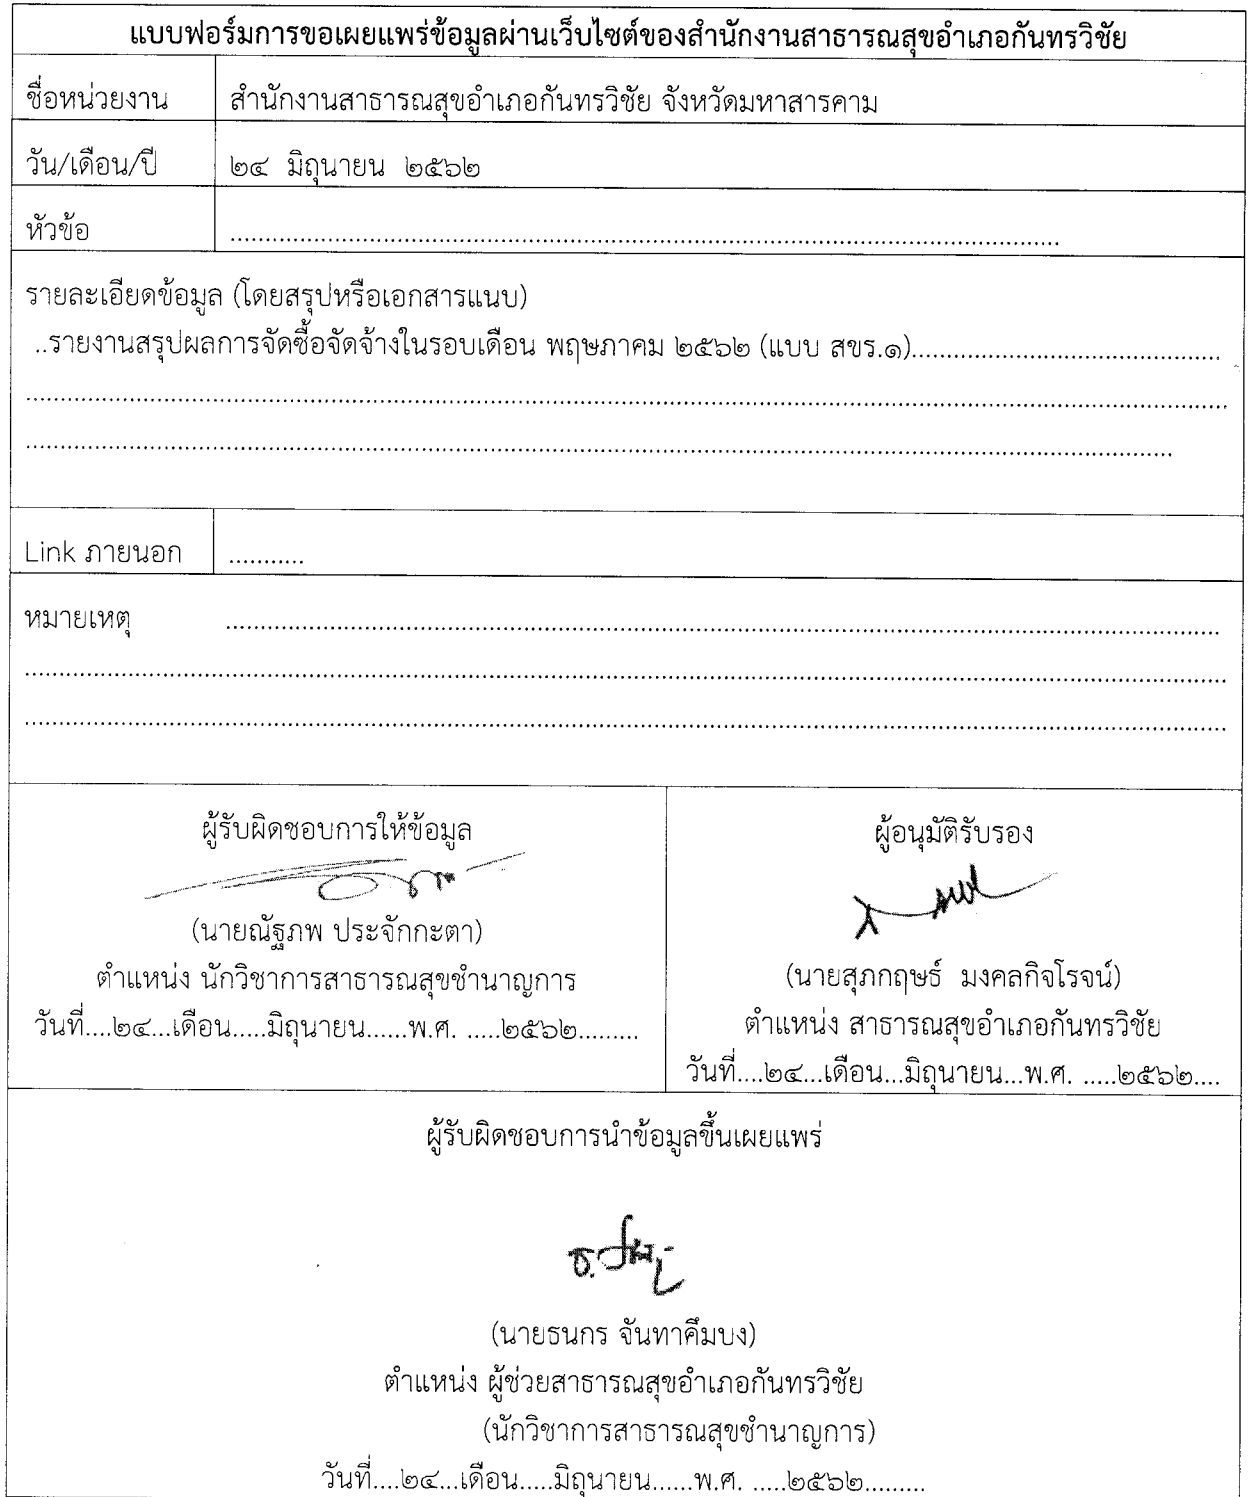 แบบฟอร์มการขอเผยแพร่ข้อมูลผ่านเว็บไซต์ของสำนักงานสาธารณสุขอำเภอกันทรวิชัย
ชื่อหน่วยงาน สำนักงานสาธารณสุขอำเภอกันทรวิชัย จังหวัดมหาสารคาม
วัน/เดือน/ปี ๒๔ มิถุนายน ๒๕๖๒
หัวข้อ ..........................................................................................................................
รายละเอียดข้อมูล (โดยสรุปหรือเอกสารแนบ)
..รายงานสรุปผลการจัดซื้อจัดจ้างในรอบเดือน พฤษภาคม ๒๕๖๒ (แบบ สขร.๑)..............................................
Link ภายนอก ...........
หมายเหตุ ..........................................................................................................................
ผู้รับผิดชอบการให้ข้อมูล
(นายณัฐภพ ประจักกะตา)
ตำแหน่ง นักวิชาการสาธารณสุขชำนาญการ
วันที่....๒๔...เดือน.....มิถุนายน......พ.ศ. .....๒๕๖๒.........
ผู้อนุมัติรับรอง
(นายสุภกฤษธ์ มงคลกิจโรจน์)
ตำแหน่ง สาธารณสุขอำเภอกันทรวิชัย
วันที่....๒๔...เดือน...มิถุนายน...พ.ศ. .....๒๕๖๒....
ผู้รับผิดชอบการนำข้อมูลขึ้นเผยแพร่
(นายธนกร จันทาคึมบง)
ตำแหน่ง ผู้ช่วยสาธารณสุขอำเภอกันทรวิชัย
(นักวิชาการสาธารณสุขชำนาญการ)
วันที่....๒๔...เดือน.....มิถุนายน......พ.ศ. .....๒๕๖๒.........